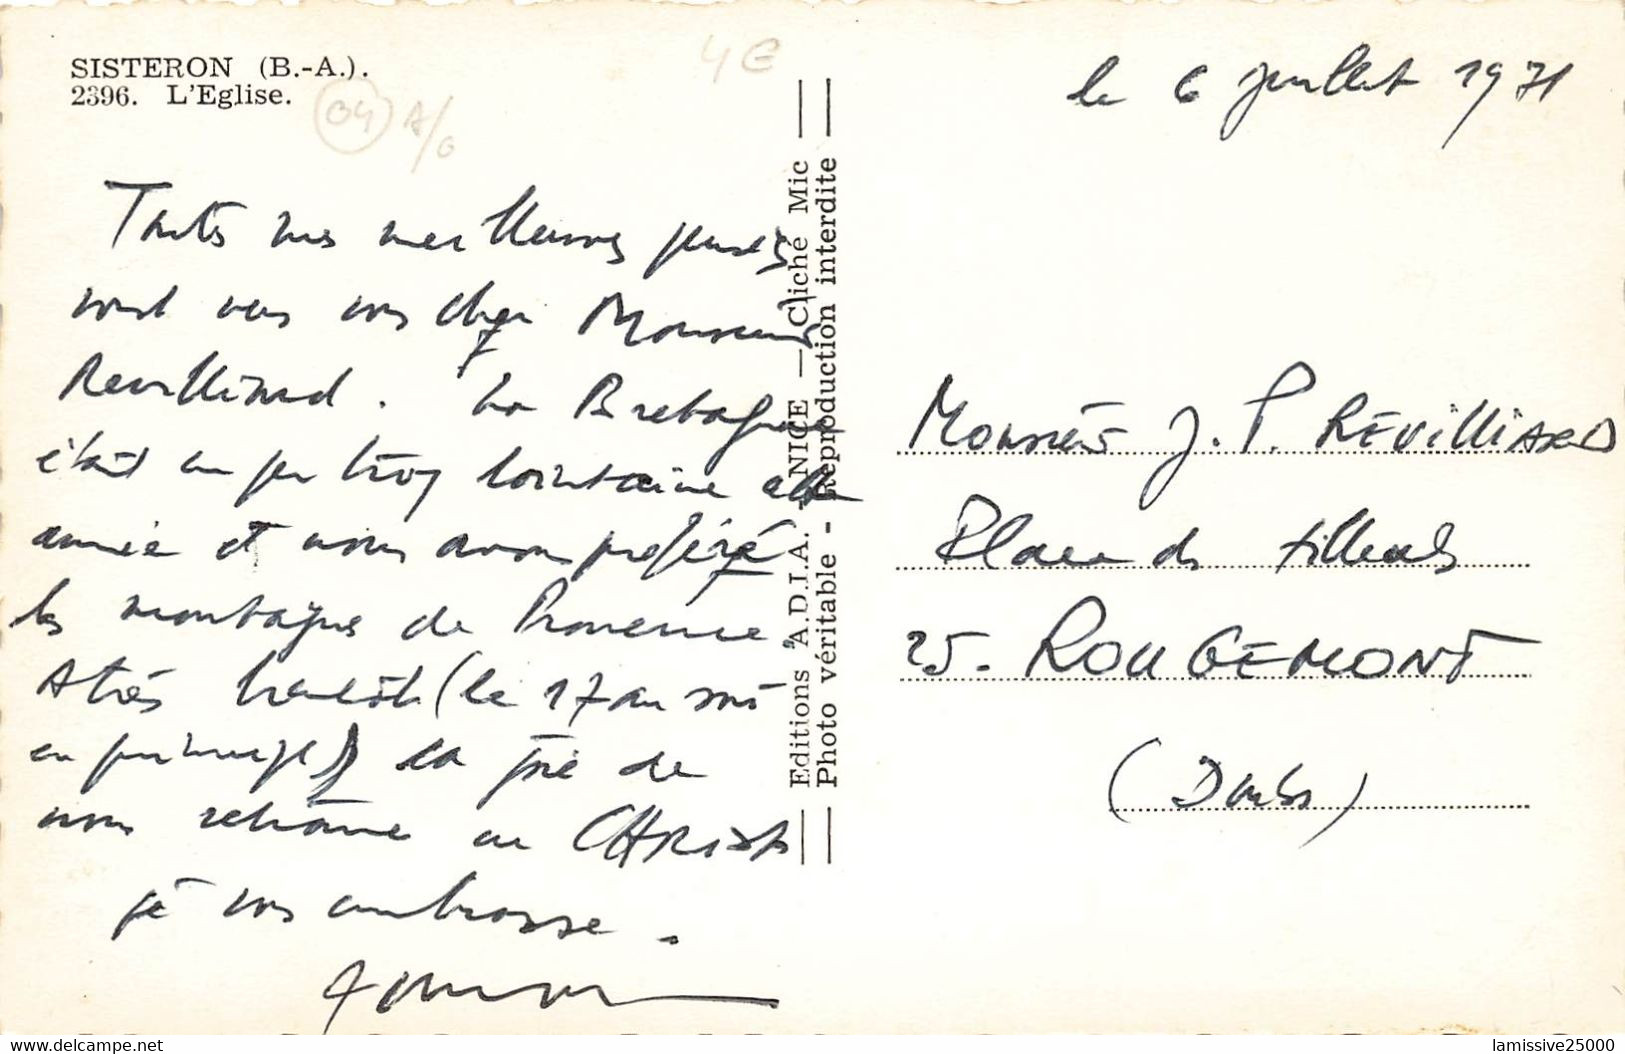 SISTERON (B.-A.).
2396. L'Eglise.
04 A/G
4 €
le 6 juillet 1971
Toutes mes meilleures pensées
vont vers vous cher Monsieur
Revilliard. La Bretagne
était un peu trop lointaine cette
année et nous avons préféré
les montagnes de Provence
A très bientôt (le 17 au soir
en principe) la joie de
nous retrouver en CHRIST
je vous embrasse.
Editions "A.D.I.A. - NICE — Cliché Mic
Photo véritable - Reproduction interdite
Monsieur J. P. REVILLIARD
Place des tilleuls
25. ROUGEMONT
(Doubs)
lamissive25000